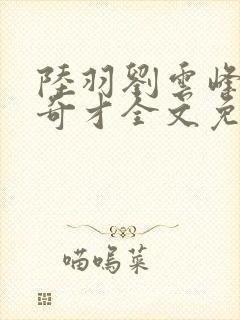 陸羽劉雲峰
奇才全文免
喵嗚菜